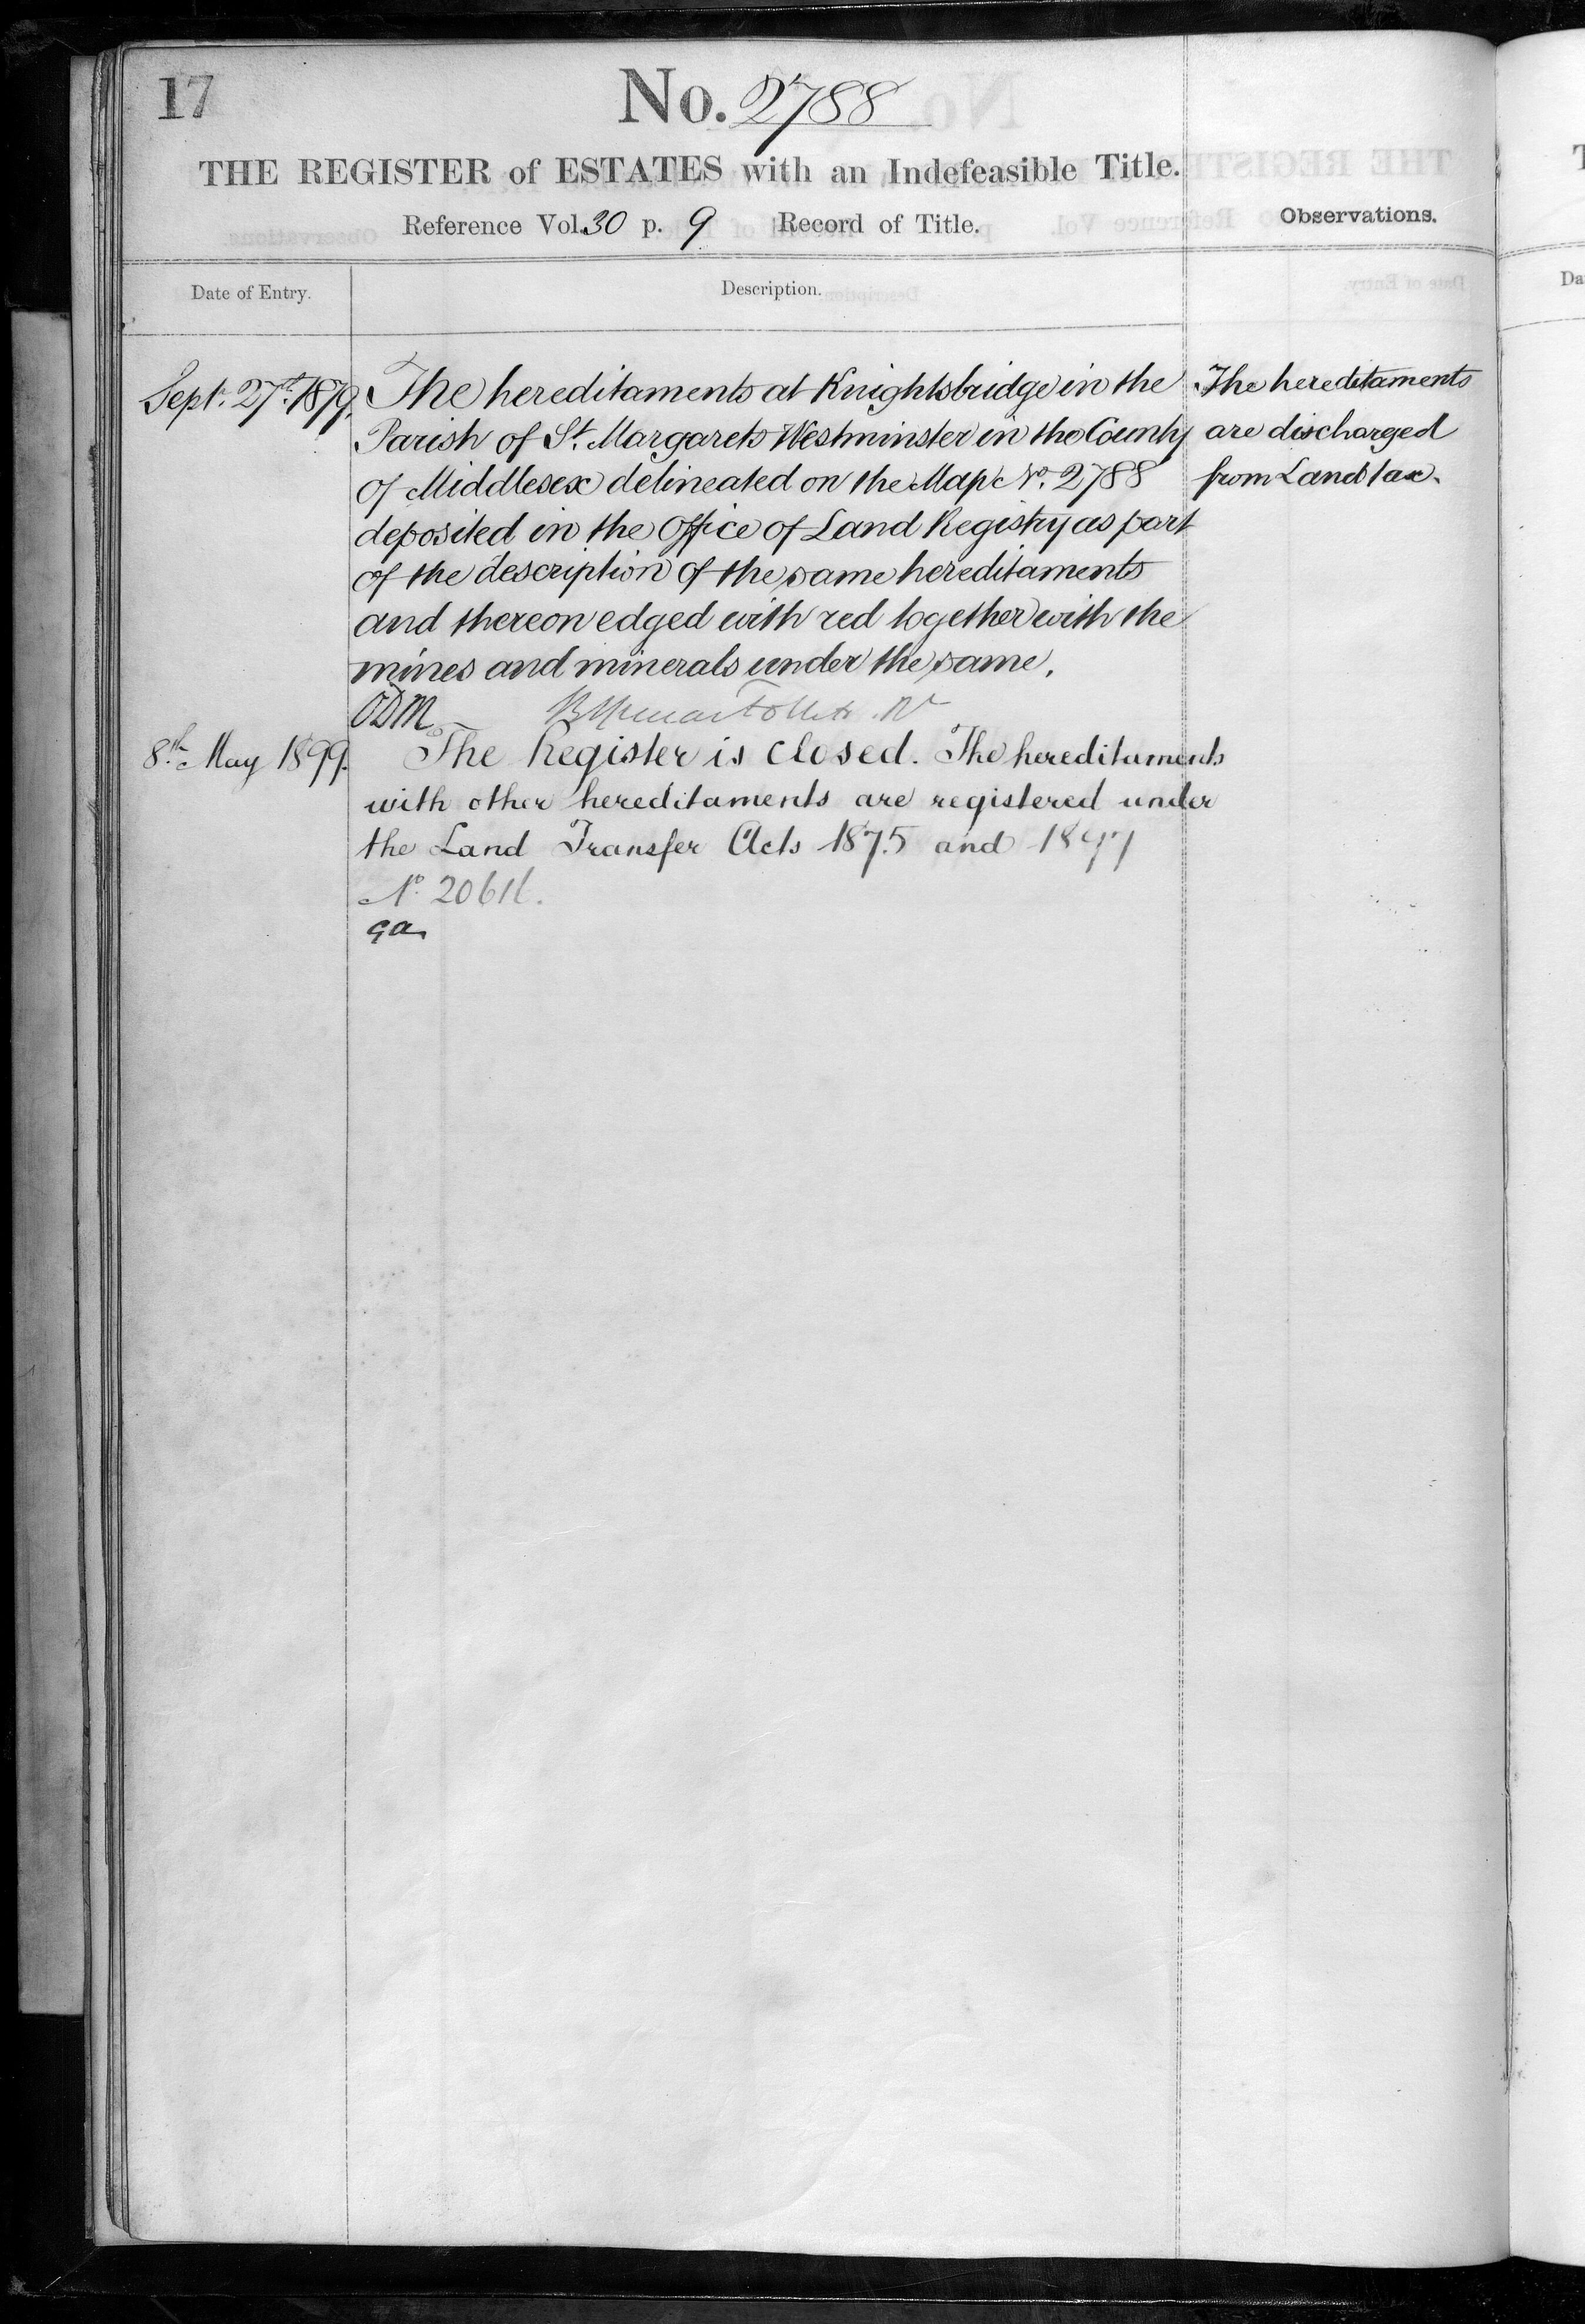 17
No. 2788
THE REGISTER of ESTATES with an Indefeasible Title.
Reference Vol. 30 p. 9 Record of Title.
Observations.
Date of Entry.
Description.
Sept. 27th. 1879.
The hereditaments at Knightsbridge in the
Parish of St. Margarets Westminster in the County
of Middlesex delineated on the Map No. 2788
deposited in the Office of Land Registry as part
of the description of the same hereditaments
and thereon edged with red together with the
mines and minerals under the same.
ODM
The hereditaments
are discharged
from Land tax.
8th May 1899.
The Register is closed. The hereditaments
with other hereditaments are registered under
the Land Transfer Acts 1875 and 1897
No.
ga